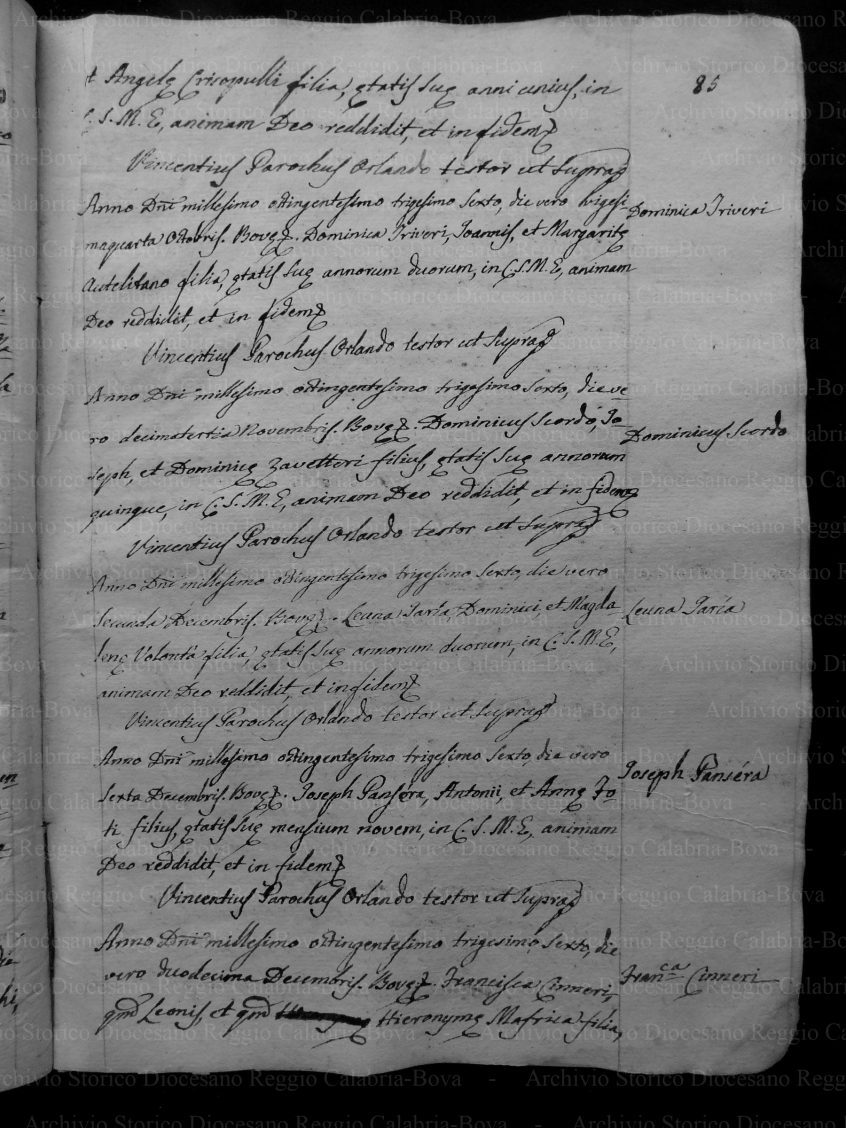 85
et Angelę Crisopulli filia, ętatis suę anni unius, in
C. S. M. E, animam Deo reddidit, et in fidem
Vincentius Parochus Orlando testor ut supra
Anno Dni millesimo octingentesimo trigesimo sexto, die vero vigesi
maquarta Octobris. Bovę. Dominica Triveri, Joannis, et Margaritę
Autelitano filia, ętatis suę annorum duorum, in C. S. M. E, animam
Deo reddidit, et in fidem
Vincentius Parochus Orlando testor ut supra
Dominica Triveri
Anno Dni millesimo octingentesimo trigesimo sexto, die ve-
ro decimatertia Novembris. Bovę. Dominicus Scordo, Jo-
seph, et Dominicę Zavetteri filius, ętatis suę annorum
quinque, in C. S. M. E, animam Deo reddidit, et in fidem
Vincentius Parochus Orlando testor ut supra
Dominicus Scordo
Anno Dni millesimo octingentesimo trigesimo sexto, die vero
secunda Decembris. Bovę. Leuna Jaria, Dominici, et Magda
lenę Volontà filia, ętatis suę annorum duorum, in C. S. M. E,
animam Deo reddidit, et in fidem
Vincentius Parochus Orlando testor ut supra
Leuna Jaria
Anno Dni millesimo octingentesimo trigesimo sexto, die vero
sexta Decembris. Bovę. Joseph Panséra, Antonii, et Annę Fo-
ti filius, ętatis suę mensium novem, in C. S. M. E, animam
Deo reddidit, et in fidem
Vincentius Parochus Orlando testor ut supra
Joseph Panséra
Anno Dni millesimo octingentesimo trigesimo sexto, die
vero duodecima Decembris. Bovę. Francisca Cinneri,
qnd Leonis, et qnd Hieronymę Mafrica filia,
Fran.ca Cinneri
Archivio Storico Diocesano Reggio Calabria-Bova